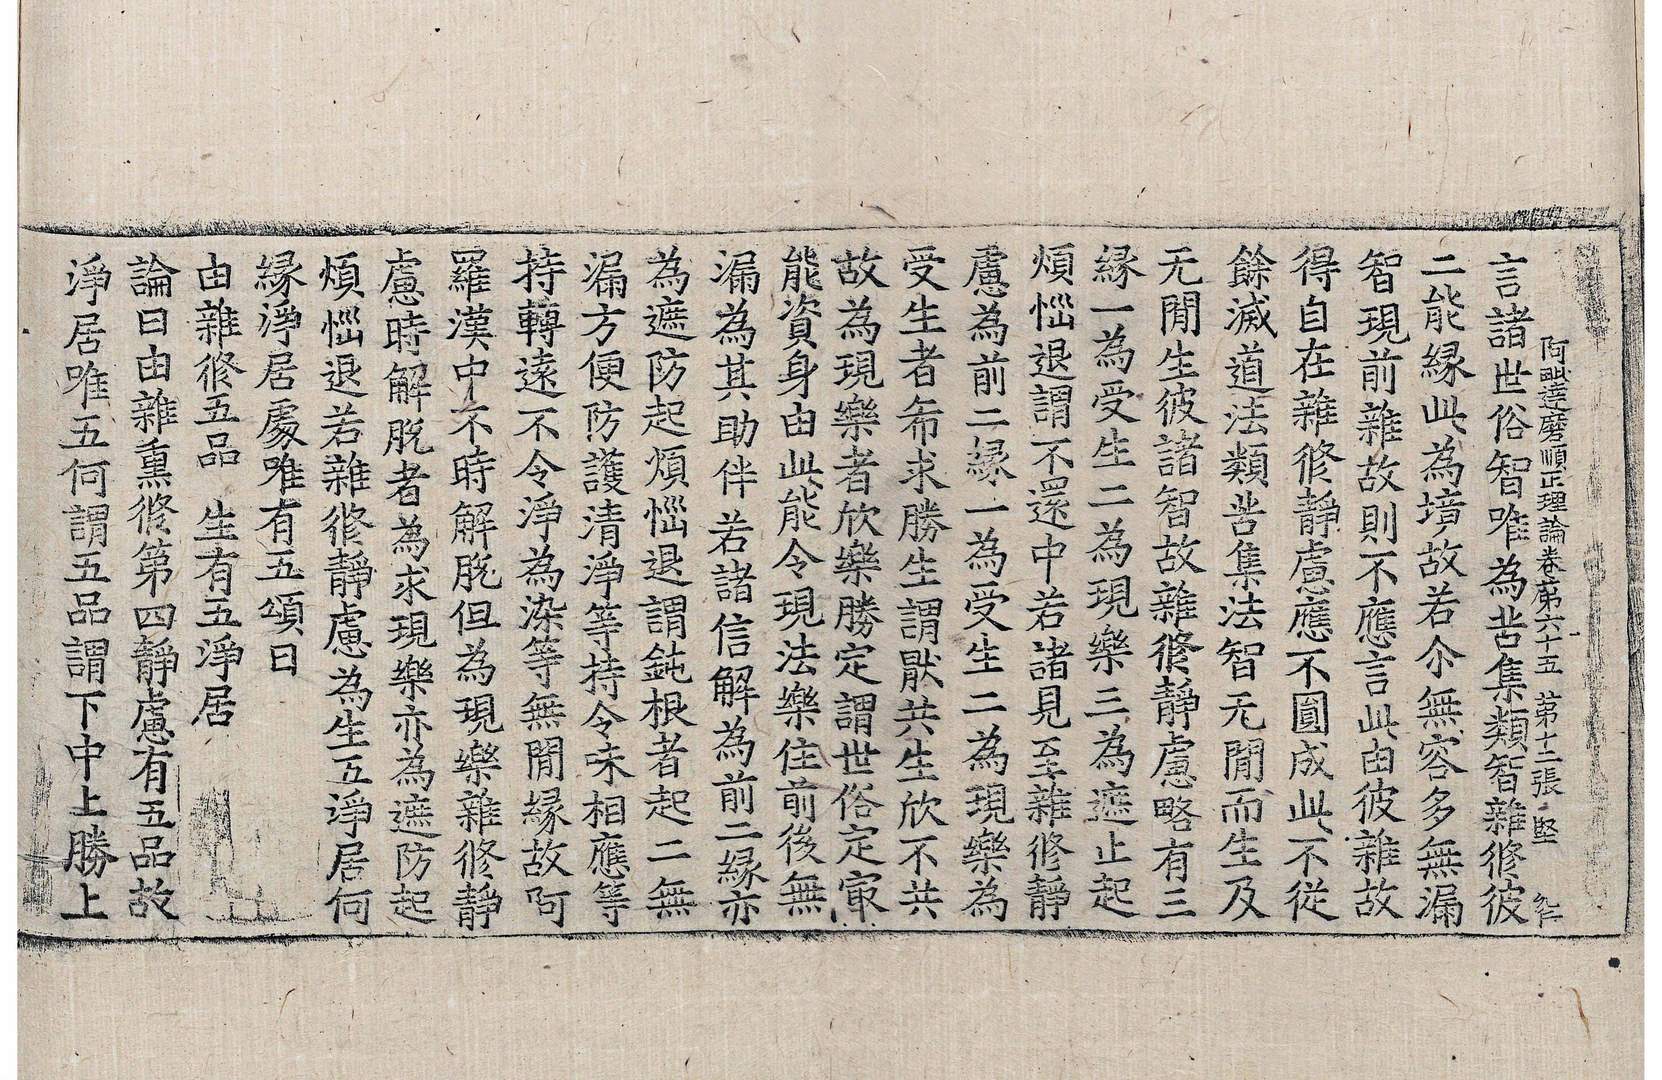 阿毗達磨順正理論卷第六十五 第十二張 堅
言諸世俗智唯為苦集類智雜修彼
二能緣此為境故若尒無容多無漏
智現前雜故則不應言此由彼雜故
得自在雜修靜慮應不圓成此不從
餘滅道法類苦集法智无閒而生及
无閒生彼諸智故雜修靜慮略有三
緣一為受生二為現樂三為遮止起
煩惱退謂不還中若諸見至雜修靜
慮為前二緣一為受生二為現樂為
受生者希求勝生謂猒共生欣不共
故為現樂者欣樂勝定謂世俗定㝡
能資身由此能令現法樂住前後無
漏為其助伴若諸信解為前二緣亦
為遮防起煩惱退謂鈍根者起二無
漏方便防護清淨等持令味相應等
持轉遠不令淨為染等無閒緣故阿
羅漢中不時解脫但為現樂雜修靜
慮時解脫者為求現樂亦為遮防起
煩惱退若雜修靜慮為生五淨居何
緣淨居處唯有五頌曰
由雜修五品 生有五淨居
論曰由雜熏修第四靜慮有五品故
淨居唯五何謂五品謂下中上勝上